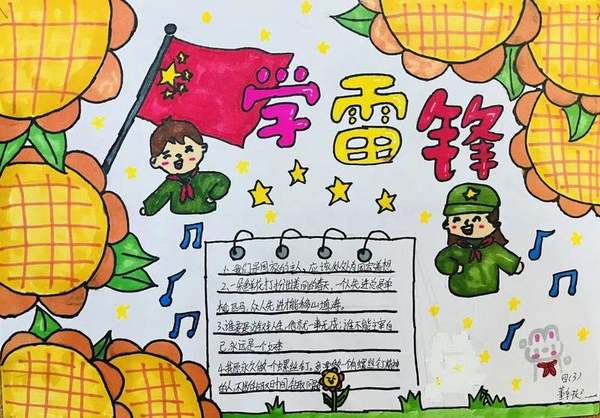 学雷锋
1、我们是国家的主人、应该处处为国家着想
2、一朵鲜花打扮不出美丽的春天、一个人先进总是单
枪匹马，众人先进才能移山填海。
3、谁要是游戏人生，他就一事无成；谁不能主宰自
己，永远是一个奴隶
4、我愿永久做一个螺丝钉，
的人，不
四(3)